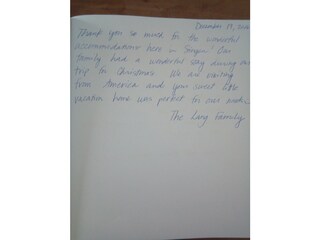 December 19,
Thank you so much for the wonderful
accommodations here in Our
family had a wonderful stay during our
trip for Christmas. We are visiting
from America and your sweet little
vacation home was perfect for our needs.
The Family